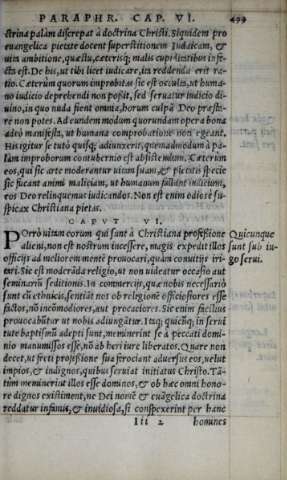 PARAPHR. CAP. VI. 499
ctrina palàm discrepat à doctrina Christi. Siquidem pro
euangelica pietate docent superstitionem Iudaicam, &
uim ambitione, quæstu, cæterisq; malis cupiditatibus infe
cta est. De his, ut tibi licet iudicare, ita reddenda erit ra-
tio. Cæterùm quorum improbitas sic est occulta, ut huma-
no iudicio deprehendi non possit, sed seruatur iudicio di-
uino, in quo nuda sient omnia, horum culpã Deo præsta-
re non potes. Ad eundem modum quorundam opera bona
adeò manifesta, ut humana comprobatione non egeant.
His igitur se tutò quisq; adiunxerit, quemadmodum à pa-
làm improborum contubernio est abstinendum. Cæterùm
eos, qui sic arte moderantur uitam suam, & pietatis specie
sic fucant animi maliciam, ut humanum fallant iudicium,
eos Deo relinquemus iudicandos. Non est enim odiosè su-
spicax Christiana pietas.
CAPVT VI.
POrrò uitam eorum qui sunt à Christiana professione
alieni, non est nostrum incessere, magis expedit illos
officijs ad meliorem mentẽ prouocari, quàm conuitijs irri-
tari. Sic est moderãda religio, ut non uideatur occasio aut
seminariũ seditionis. In commercijs, quæ nobis necessariò
sunt cũ ethnicis, sentiãt nos ob religionẽ officiosiores esse
factos, nõ incõmodiores, aut procaciores. Sic enim faciliùs
prouocabũtur ut nobis adiungãtur. Itaq; quicũq; in serui
tute baptismũ adepti sunt, meminerint se à peccati domi-
nio manumissos esse, nõ ab heri iure liberatos. Quare non
decet, ut freti professiõe sua ferociant aduersus eos, uelut
impios, & indignos, quibus seruiat initiatus Christo. Tã-
tùm meminerint illos esse dominos, & ob hæc omni hono-
re dignos existiment, ne Dei nomẽ & euãgelica doctrina
reddatur infamis, & inuidiosa, si conspexerint per hanc
Iii 2 homines
Quicunque
sunt sub iu-
go serui.